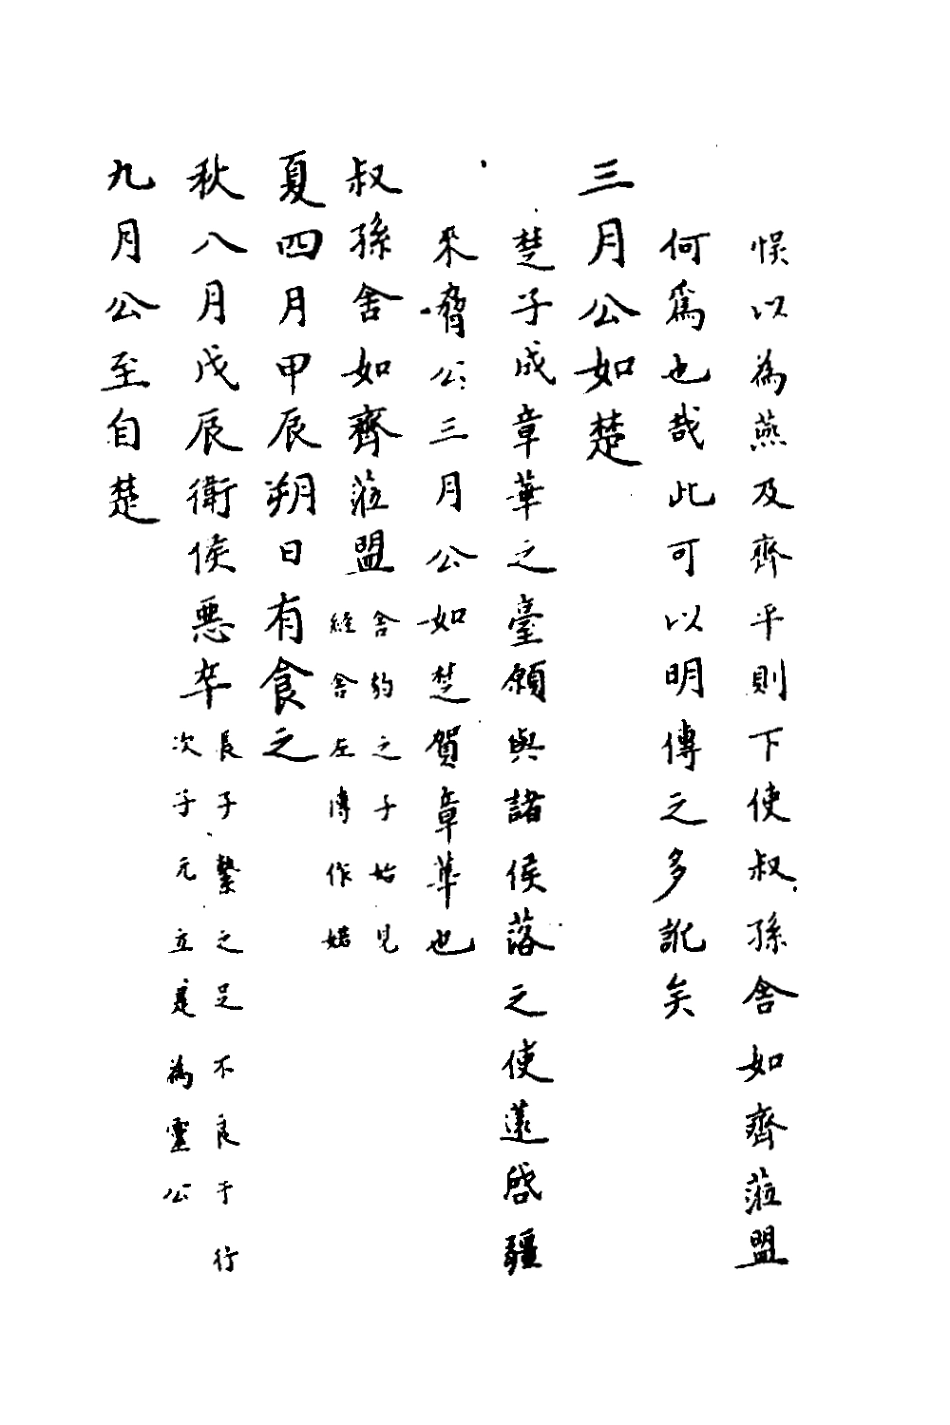 悞以為燕及齊平則下使叔孫舍如齊蒞盟
何爲也哉此可以明傳之多訛矣
三月公如楚
楚子成章華之臺願與諸侯落之使薳啓疆
來脅公三月公如楚賀章華也
叔孫舍如齊蒞盟
舍豹之子始見
經舍左傳作婼
夏四月甲辰朔日有食之
秋八月戊辰衛侯惡卒
長子縶之足不良于行
次子元立是為靈公
九月公至自楚